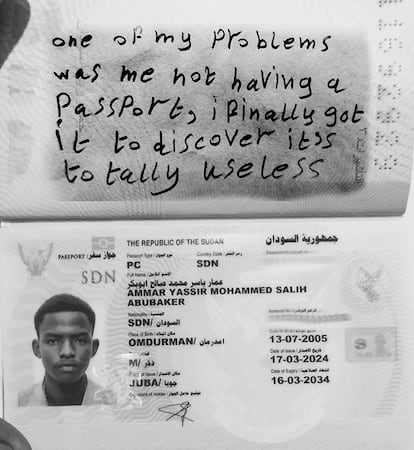 one of my problems
was me not having a
Passport, i finally got
it to discover it's
totally useless
THE REPUBLIC OF THE SUDAN
جمهورية السودان
PASSPORT / جواز سفر
SDN
Passport Type / نوع الجواز
Country Code / رمز القطر
PC
SDN
عمار ياسر محمد صالح ابوبكر
AMMAR YASSIR MOHAMMED SALIH
ABUBAKER
Nationality / الجنسية
SDN/ السودان
Place of Birth / مكان الميلاد
OMDURMAN/ امدرمان
M/ ذكر
JUBA/ جوبا
Signature of Holder
National No.
Date of Birth / تاريخ الميلاد
13-07-2005
Date of Issue / تاريخ الاصدار
17-03-2024
Date of Expiry
16-03-2034